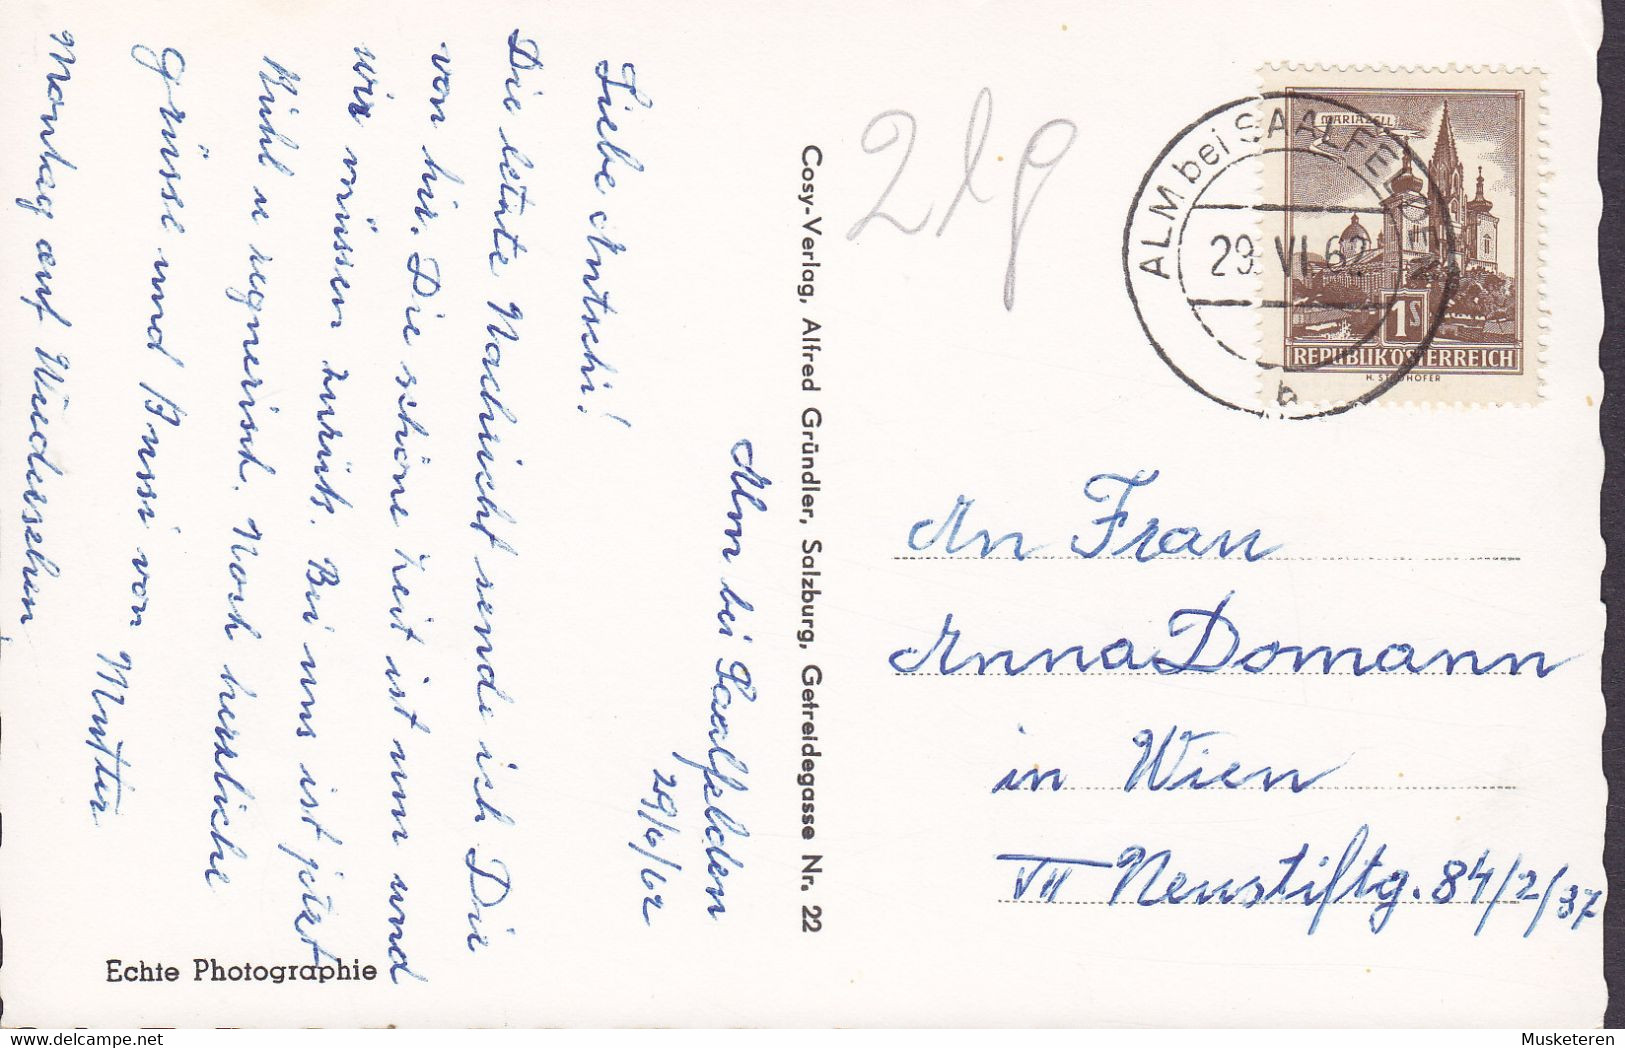 Alm bei Saalfelden
29/6/62
Liebe Antschi!
Die letzte Nachricht sende ich Dir
von hir. Die schöne Zeit ist um und
wir müssen zurück. Bei uns ist jetzt
Kühl u regnerisch. Noch herzliche
Grüsse und Bussi von Mutter
Montag auf Wiedersehen
Echte Photographie
Cosy-Verlag, Alfred Gründler, Salzburg, Getreidegasse Nr. 22
ALM bei SAALFELDEN
29. VI. 62
b
MARIAZELL
1S
REPUBLIK ÖSTERREICH
An Frau
Anna Domann
in Wien
VII Neustiftg. 84/2/37
Musketeren